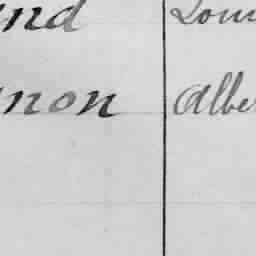 and Loui
non Albe